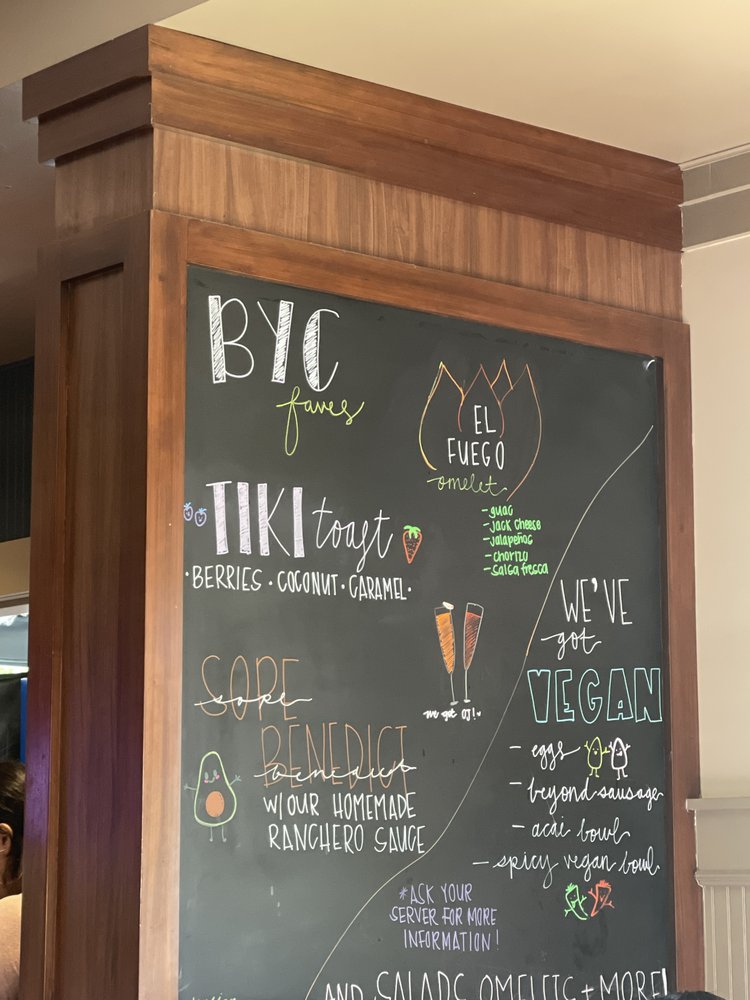 BYC
faves
EL
FUEGO
omelet
- guac
- Jack Cheese
- Jalapeños
- Chorizo
- Salsa fresca
TIKI toast
• BERRIES • COCONUT • CARAMEL •
SOPE
sope
BENEDICT
benedict
W/ OUR HOMEMADE
RANCHERO SAUCE
we got OJ!
WE'VE
got
VEGAN
- eggs
- beyond sausage
- acai bowl
- spicy vegan bowl
*ASK YOUR
SERVER FOR MORE
INFORMATION!
AND SALADS, OMELETS + MORE!